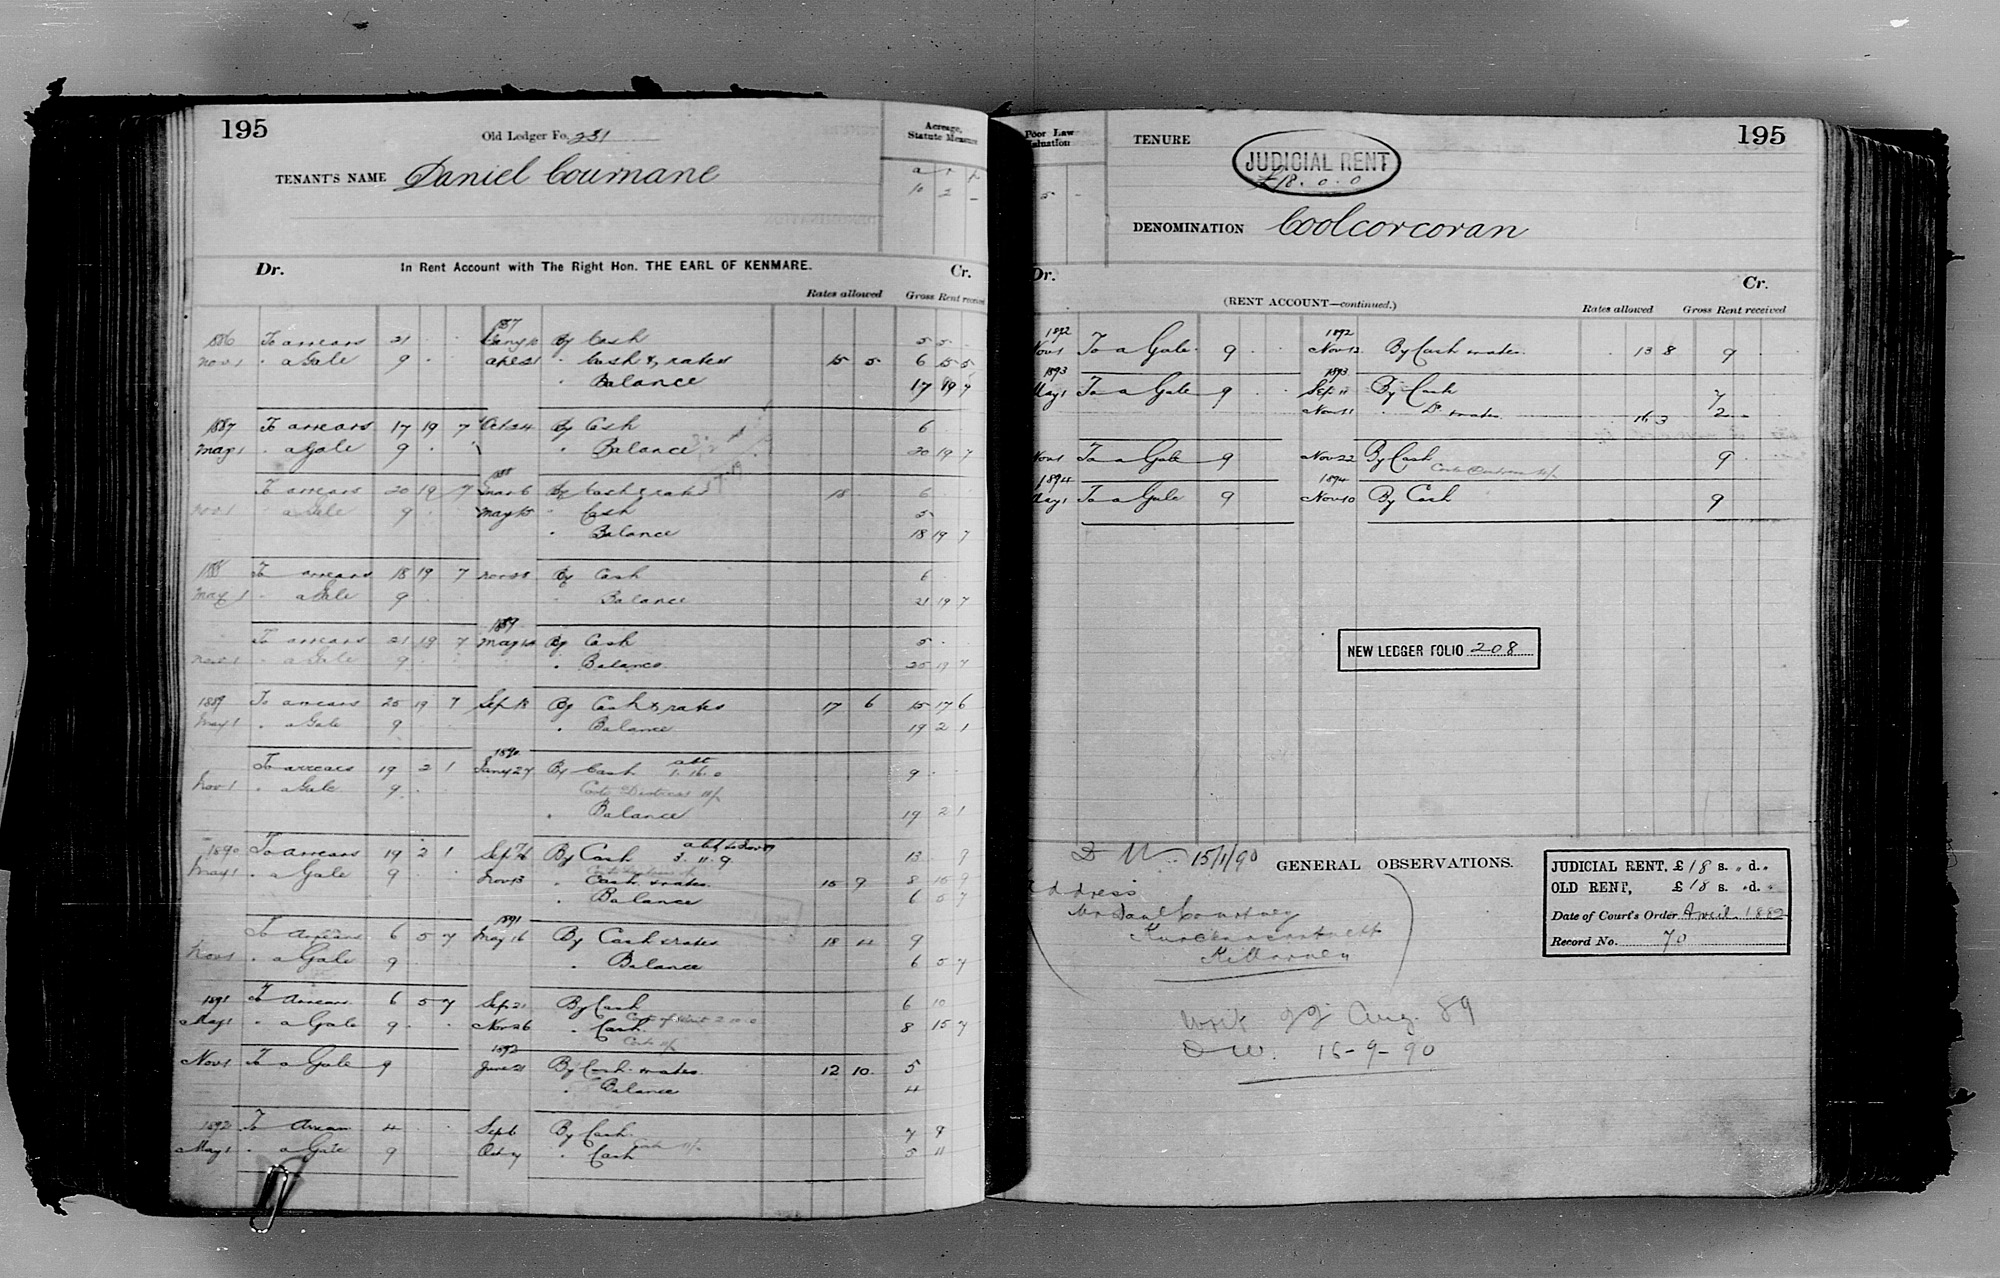 195
Old Ledger Fo. 231
TENANT'S NAME Daniel Cournane
Acreage, Statute Measure
a r p
10 2 -
Dr. In Rent Account with The Right Hon. THE EARL OF KENMARE. Cr.
Rates allowed Gross Rent received
1887
1886 To arrears 21 . . Jany 10 By Cash 5 5 .
Nov 1 " a Gale 9 . . " Cash & rates 15 5 6 15 5
" Balance 17 19 7
1887 To arrears 17 19 7 Oct 24 By Cash 6
May 1 " a Gale 9 . " Balance 20 19 7
1888
To arrears 20 19 7 Mar 6 By Cash & rates 18 6
Nov 1 " a Gale 9 . May 15 " Cash 5
" Balance 18 19 7
1888 To arrears 18 19 7 By Cash 6
May 1 " a Gale 9 . " Balance 21 19 7
1889
To arrears 21 19 7 May By Cash 5 .
Nov 1 " a Gale 9 " Balance 25 19 7
1889 To arrears 25 19 7 Sep 18 By Cash & rates 17 6 15 17 6
May 1 " a Gale 9 " Balance 19 2 1
1890
To arrears 19 2 1 Jany 27 By Cash 1.16.0 9 .
Nov 1 " a Gale 9 .
Costs Distress 11/
" Balance 19 2 1
1890 To arrears 19 2 1 Sep 16 By Cash 3.11.9 13 9
May 1 " a Gale 9 Nov 13 " Cash & rates 15 9 8 15 9
" Balance 6 5 7
1891
To Arrears 6 5 7 May 16 By Cash & rates 18 4 9
Nov 1 " a Gale 9 . " Balance 6 5 7
1891 To Arrears 6 5 7 Sep 21 By Cash 6 10
May 1 " a Gale 9 . . Nov 26 " Cash 8 15 7
Costs 11/
1892
Nov 1 To a Gale 9 June 21 By Cash & rates 12 10 5
" Balance 4
1892 To Arrears 4 . . Sep 6 By Cash 7 9
May 1 " a Gale 9 Oct 7 " Cash 5 11
195
Poor Law Valuation
5 -
TENURE
JUDICIAL RENT
£18.0.0
DENOMINATION Coolcorcoran
Dr. Cr.
(RENT ACCOUNT—continued.) Rates allowed Gross Rent received
1892 1892
Nov 1 To a Gale 9 . . Nov 12 By Cash & rates 13 8 9
1893 1893
May 1 To a Gale 9 . . Sep 11 By Cash 7
Nov 11 " Do & rates 16 3 2
Nov 1 To a Gale 9 Nov 22 By Cash 9
1894 1894
May 1 To a Gale 9 Nov 10 By Cash 9
NEW LEDGER FOLIO 208
D W. 15/1/90
GENERAL OBSERVATIONS.
Address
Killarney
Writ 22 Aug. 89
DW. 16-9-90
JUDICIAL RENT, £18 s. " d. "
OLD RENT, £18 s. " d. "
Date of Court's Order April 1882
Record No. 70